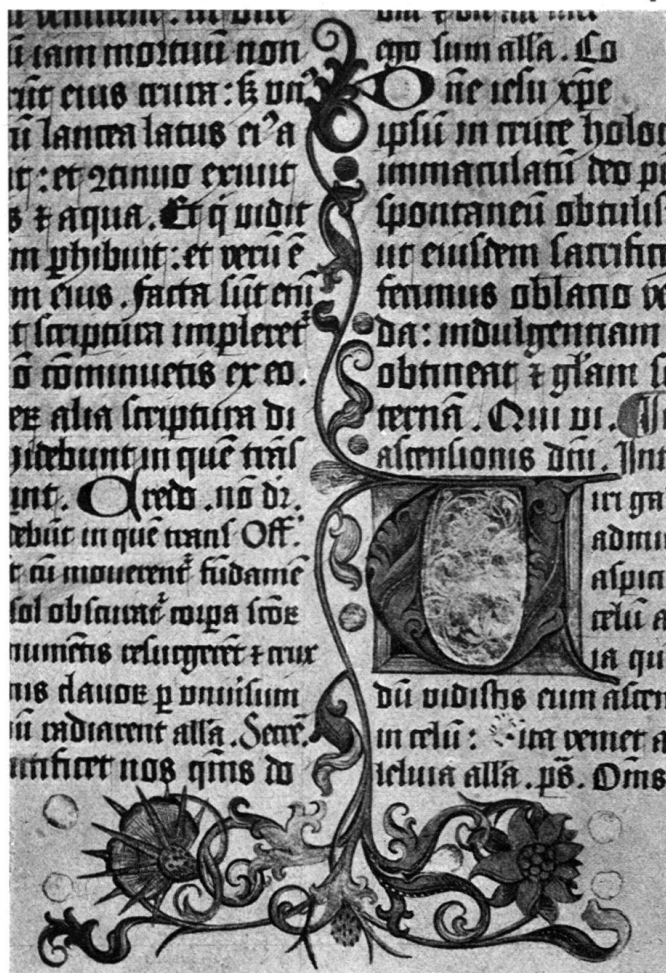 ū iam mortuū non
rūt eius crura: sꝫ vn᷒
ū lancea latus eiꝰ a
it: et ꝯtinuo exiuit
s ⁊ aqua. Et q̇ vidit
m ꝑhibuit: et verū ē
m eius. Facta sūt eni
t scriptura impleret᷑
ō cōminuetis ex eo.
eꝝ alia scriptura di
videbunt in quē trās
unt. Credo. nō dr̄.
debūt in quē trans Off.
t cū mouerent᷑ fūdamē
sol obscurat᷑ corꝑa scōꝝ
numētis resurgerēt ⁊ crux
nis clauoꝝ ꝑ vniuisum
ū radiarent alla. Secre.
ntificet nos qm̄s do
ego sum alla. Co
Dne iesu xp̄e
ipsū in cruce holoc
immaculatū deo p
spontaneū obtulis
ut eiusdem sacrific
ferimus oblatio ve
da: indulgentiam
obtineat ⁊ gl̄am s
ternā. Qui vi. In
ascensionis dn̄i. Int
Viri ga
admi
aspici
celū a
ia qu
dū vidistis eum ascen
in celū: ita veniet a
leluia alla. ps̄. Om̄s